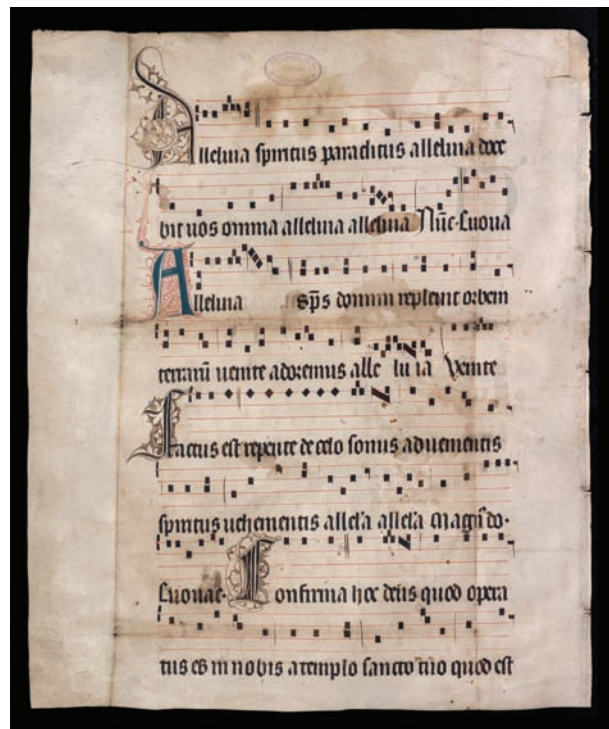 Alleluia spiritus paraclitus alleluia doce
bit uos omnia alleluia alleluia Nūc Euoua
Alleluia sp̄s domini repleuit orbem
terrarū uenite adoremus alle lu ia Venite
Factus est repente de celo sonus aduenientis
spiritus uehementis all'a all'a Magn̄ do
Euouae Confirma hec deus quod opera
tus es in nobis a templo sancto tuo quod est